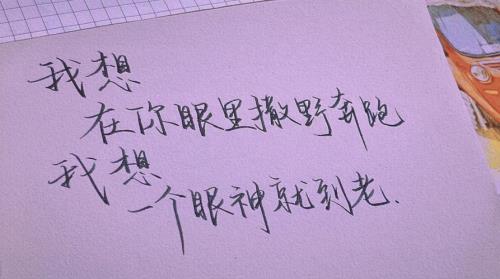 我想
在你眼里撒野奔跑
我想
一个眼神就到老.